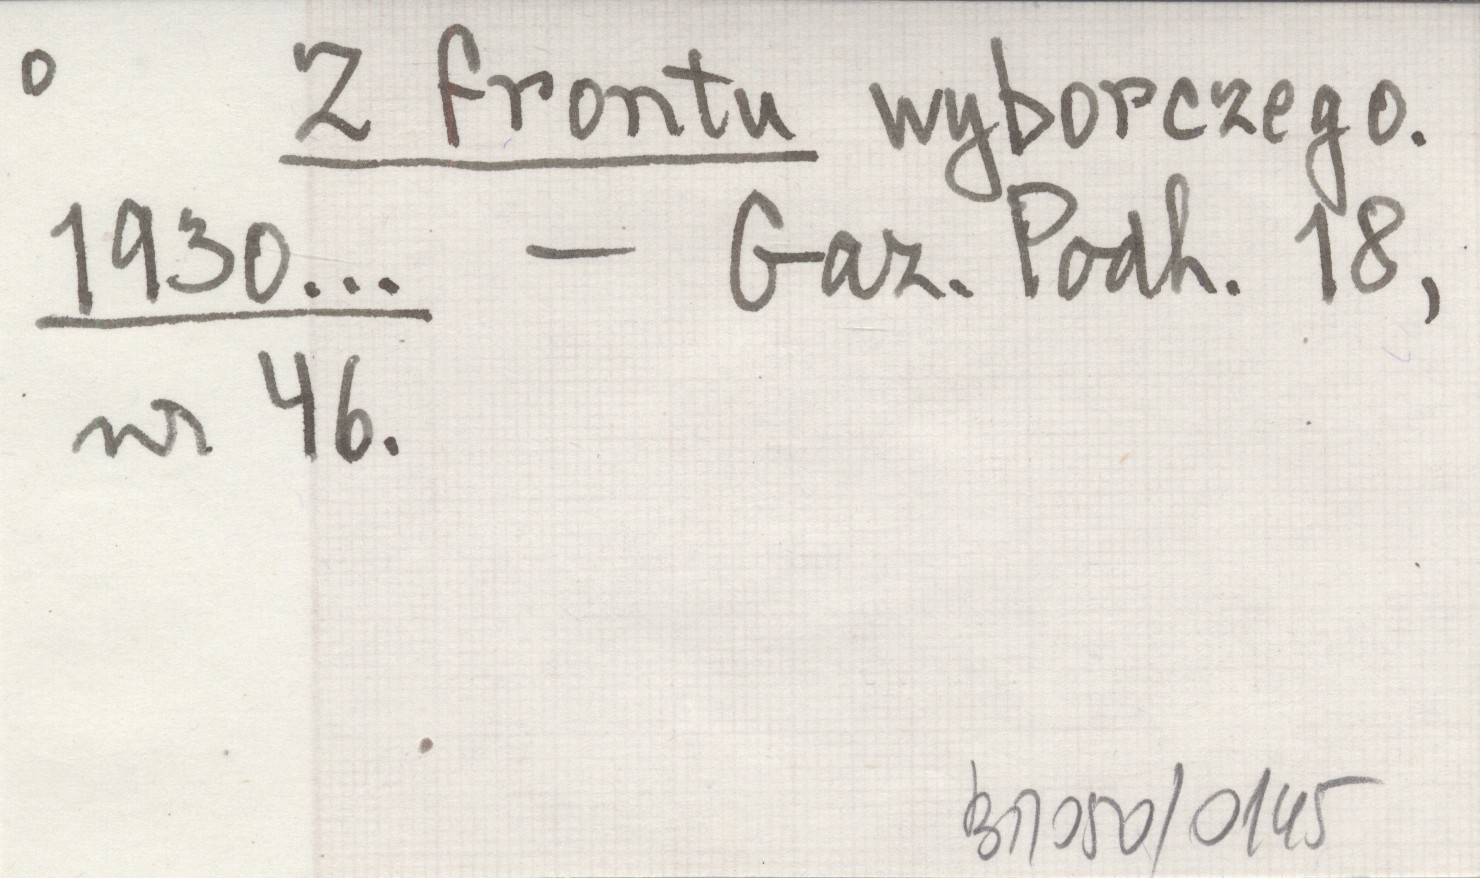 o Z frontu wyborczego.
1930... — Gaz. Podh. 18,
nr 46.